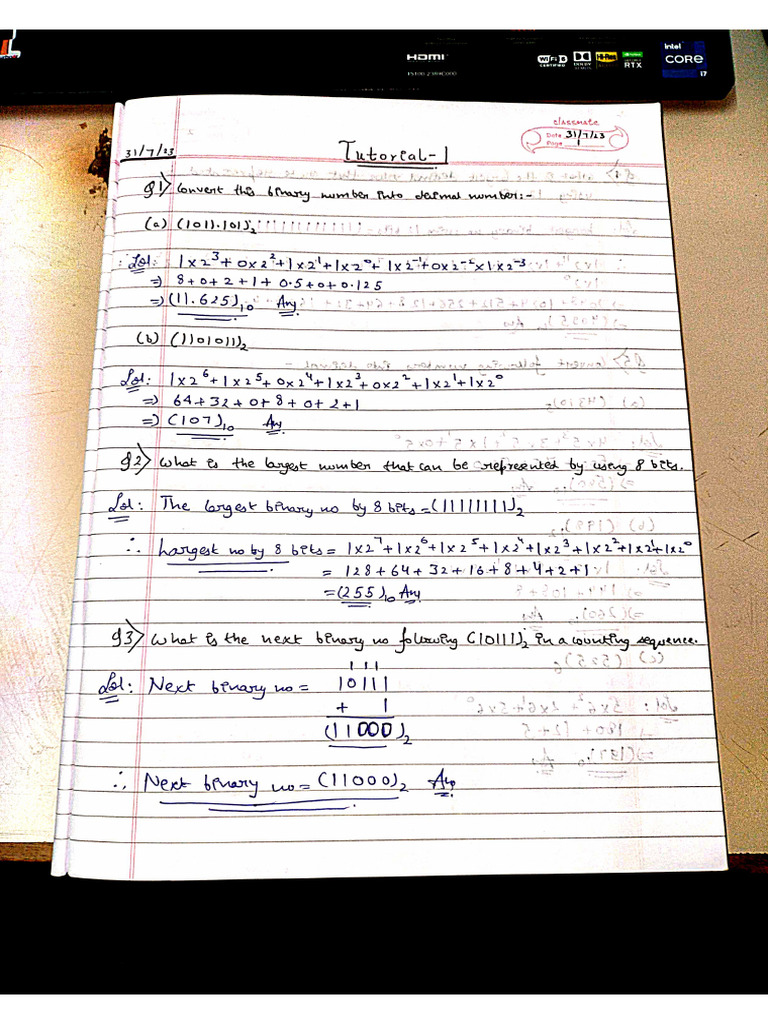 HDMI
WiFi 6
CERTIFIED
DOLBY
Hi-Res
RTX
intel
CORE
i7
classmate
Date 31/7/23
Page 1
31/7/23
Tutorial-1
Q1> Convert this binary number into decimal number:-
(a) (1011.101)₂
Sol: 1x2³+0x2²+1x2¹+1x2⁰+1x2⁻¹+0x2⁻²x1x2⁻³
=> 8+0+2+1+0.5+0+0.125
=> (11.625)₁₀ Ans.
(b) (1101011)₂
Sol: 1x2⁶+1x2⁵+0x2⁴+1x2³+0x2²+1x2¹+1x2⁰
=> 64+32+0+8+0+2+1
=> (107)₁₀ Ans
Q2> What is the largest number that can be represented by using 8 bits.
Sol: The largest binary no by 8 bits=(11111111)₂
∴ Largest no by 8 bits = 1x2⁷+1x2⁶+1x2⁵+1x2⁴+1x2³+1x2²+1x2¹+1x2⁰
= 128+64+32+16+8+4+2+1
=(255)₁₀ Ans
Q3> What is the next binary no following (10111)₂ in a counting sequence.
1 1 1
Sol: Next binary no = 10111
+ 1
(11000)₂
∴ Next binary no = (11000)₂ Ans